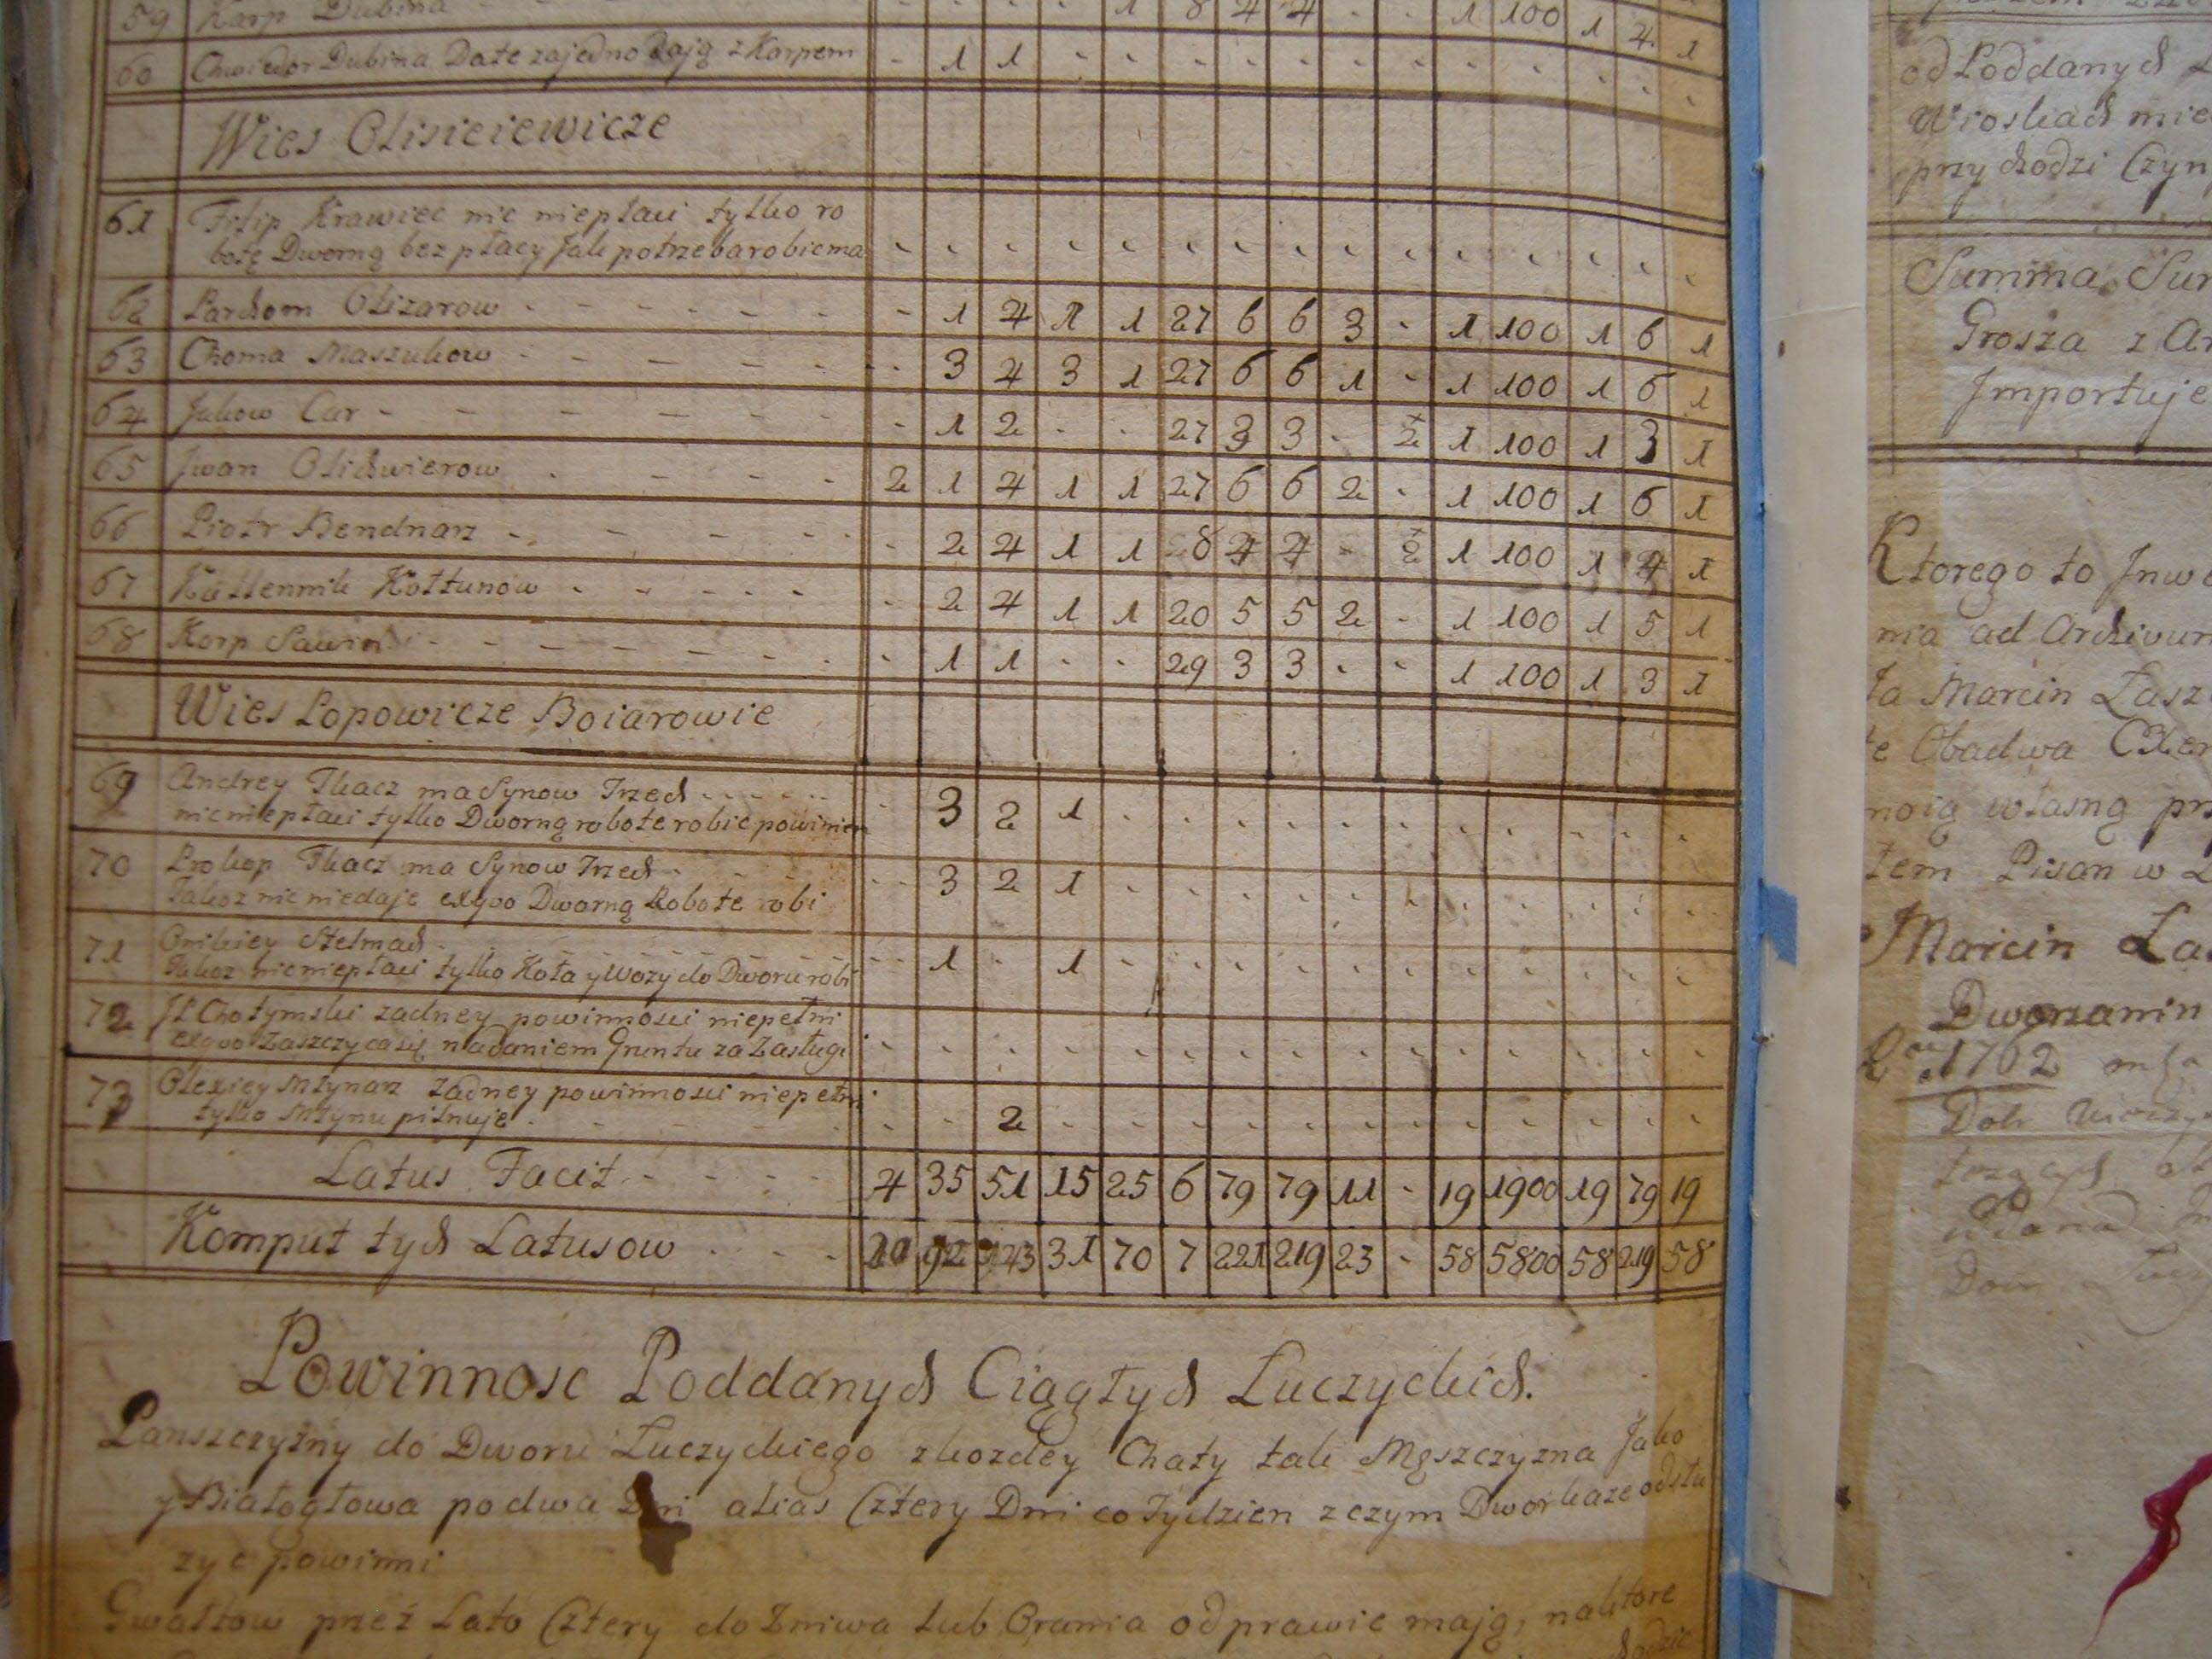 59 Karp Dubina - - 1 8 4 4 - - 1 100 1 4 1
60 Chwiedor Dubina Date zajedno Dają z Karpem - 1 1 - - - - - - - - - - - -
Wies Olisieiewicze
61 Filip Krawiec nic niepłaci tylko ro
botę Dworną bez płacy Jak potrzeba robic ma - - - - - - - - - - - - - - -
62 Parchom Olizarow - 1 4 1 1 27 6 6 3 - 1 100 1 6 1
63 Choma Maszukow - 3 4 3 1 27 6 6 1 - 1 100 1 6 1
64 Jakow Car - 1 2 - - 27 3 3 - 1/2 1 100 1 3 1
65 Jwan Olichwierow 2 1 4 1 1 27 6 6 2 - 1 100 1 6 1
66 Piotr Bendnarz - 2 4 1 1 8 4 4 - 1/2 1 100 1 4 1
67 Kallennik Kołtunow - 2 4 1 1 20 5 5 2 - 1 100 1 5 1
68 Karp Sawin - 1 1 - - 29 3 3 - - 1 100 1 3 1
Wies Popowicze Boiarowie
69 Andrey Tkacz ma Synow Trzech
nic niepłaci tylko Dworną robote robic powinien - 3 2 1 - - - - - - - - - - -
70 Prokop Tkacz ma Synow Trzech
Takoz nic niedaje exquo Dworną Robote robi - 3 2 1 - - - - - - - - - - -
71 Onikiey Stelmach
Takoz nic niepłaci tylko Koła y Wozy do Dworu robi - 1 - 1 - - - - - - - - - - -
72 JP Chotymski zadney powinnosci niepełni
exquo Zaszczyca się nadaniem Gruntu za Zasługi - - - - - - - - - - - - - - -
73 Olexiey Młynarz Zadney powinnosci niepełni
tylko Młynu pilnuje - - 2 - - - - - - - - - - - -
Latus Facit - - - - 4 35 51 15 25 6 79 79 11 - 19 1900 19 79 19
Komput tych Latusow - - - 92 143 31 70 7 221 219 23 - 58 5800 58 219 58
Powinnosc Poddanych Ciągłych Łuczyckich.
Panszczyzny do Dworu Łuczyckiego z kozdey Chaty tak Męszczyzna Jako
y Białogłowa po dwa Dni alias Cztery Dni co Tydzien z czym Dwor kaze odsłu
zyc powinni
Gwałtow przez Lato Cztery do Zniwa lub Orania odprawic mają, na ktore
od Poddanych
Wioskach mie
przychodzi Czyn
Summa Sum
Grosza z Ar
Importuje
Ktorego to Jnwe
nia ad Archivum
Ja Marcin Łasz
te Obadwa Exem
moią własną prz
tem Pisan w
Marcin Łas
Dworzanin
1762